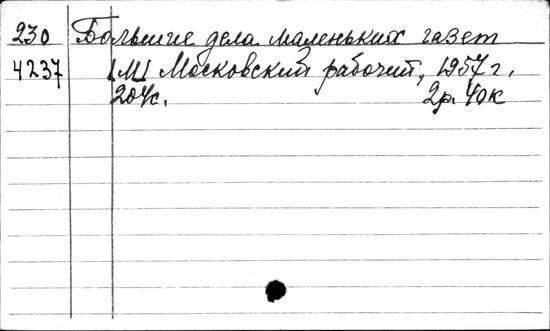 230 Большие дела маленьких газет
4237 [М] Московский рабочий, 1957 г.
204 с. 2р. 40к